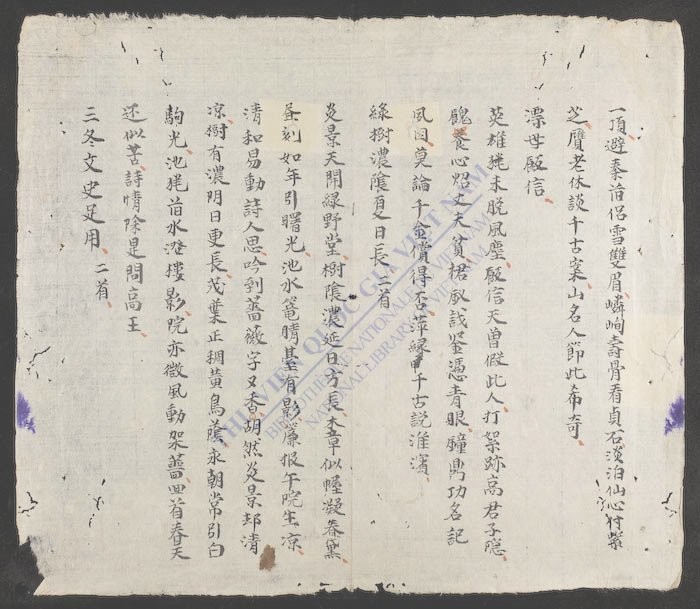 一頂避秦首侶雪雙眉嶙峋壽骨看貞石淡泊仙心紫
芝贋老休談千古案山名人節此希奇
漂母飯信
英雄未脫風塵飯信天曾假此人打絮跡高君子隱
餽養心炤丈夫貧裙釵識鉴憑青眼鐘鼎功名記
夙因莫論千金償得否萍緣千古説淮濱
綠樹濃陰夏日長二首
炎景天開緑野堂樹陰濃延日方長章似幄凝春黛
刻如年引曙光池水篭晴有影簾报午院生凉
清和易動詩人思吟到薔薇字又香胡然炎景却清
凉樹有濃阴日更長茂葉正稠黄鳥蔭永朝常引白
駒光池首水澄樓影院亦微風動架薔回首春天
还似苦詩情除是問高王
三冬文史足用二首
THƯ VIỆN QUỐC GIA VIỆT NAM
BIBLIOTHÈQUE NATIONALE DU VIETNAM
NATIONAL LIBRARY OF VIETNAM